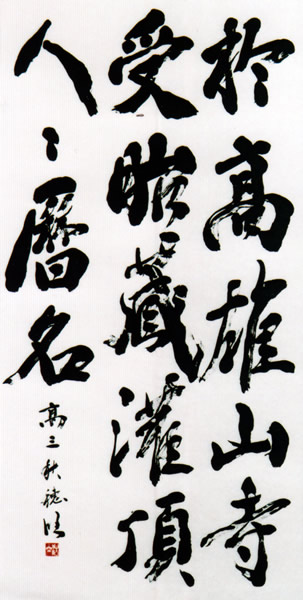 於高雄山寺
受胎蔵灌頂
人〻暦名
高三 秋穂